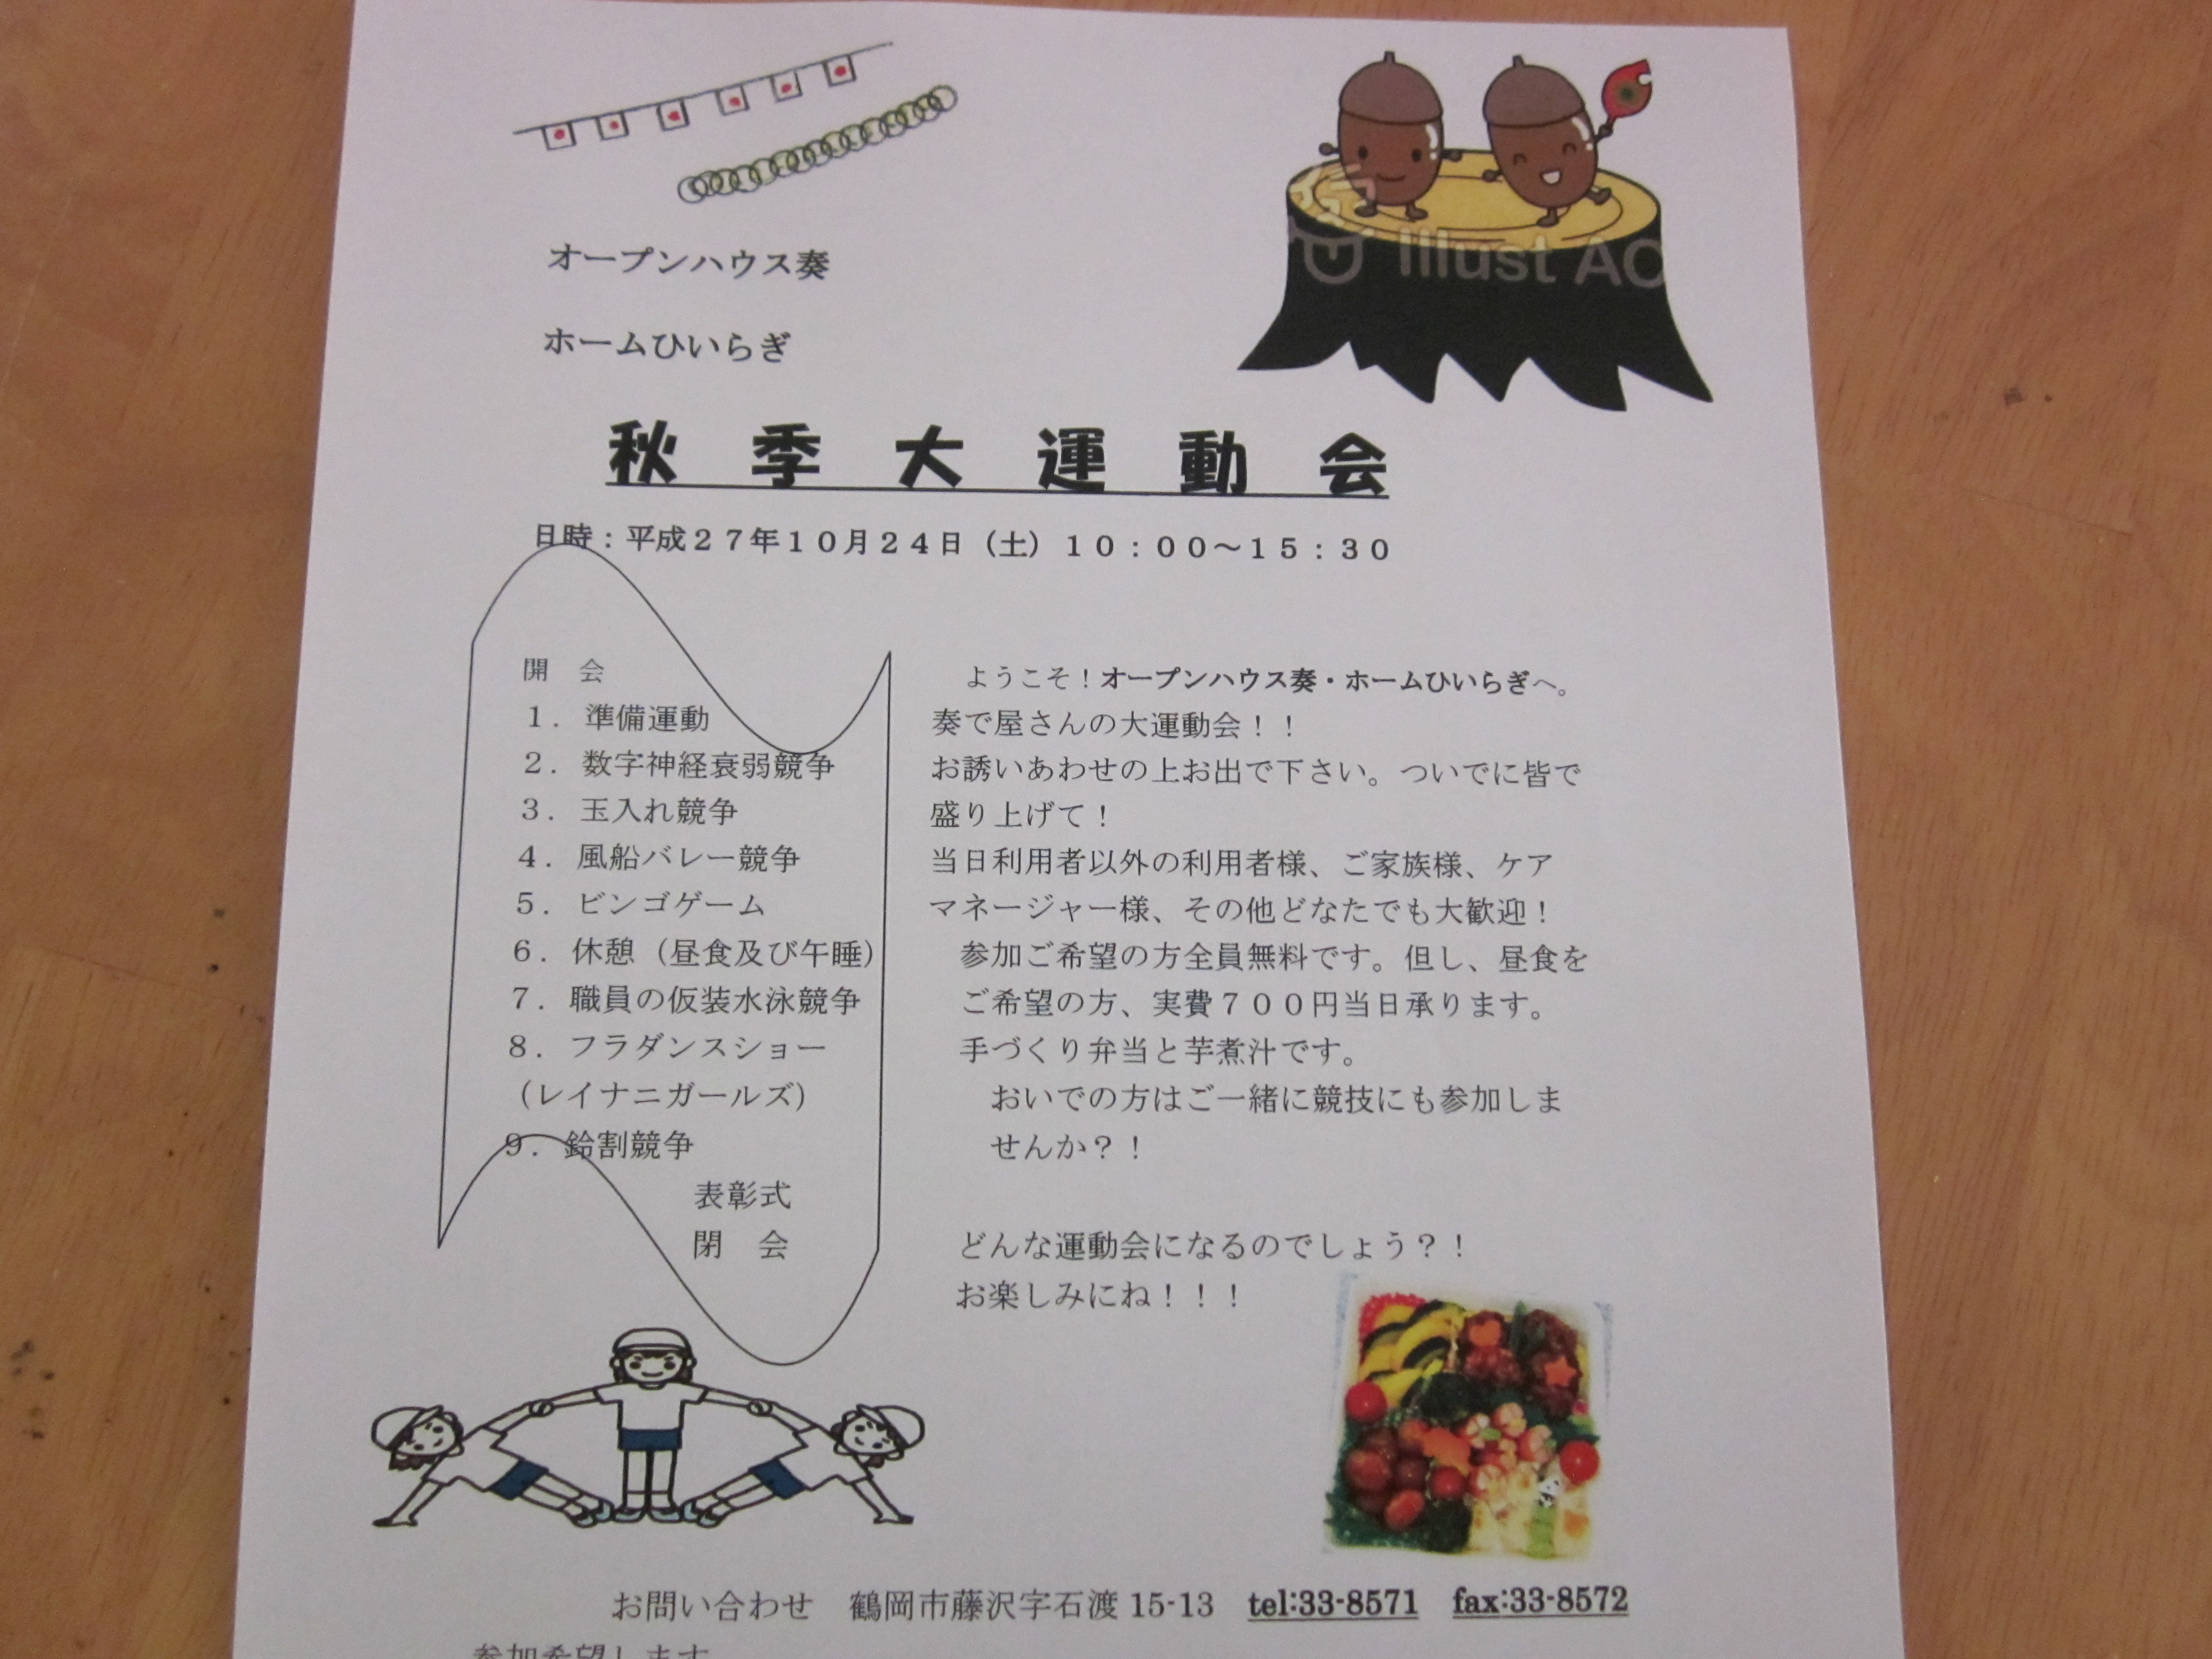 オープンハウス奏
ホームひいらぎ
Illust AC
秋季大運動会
日時：平成２７年１０月２４日（土）１０：００～１５：３０
開　会
１．準備運動
２．数字神経衰弱競争
３．玉入れ競争
４．風船バレー競争
５．ビンゴゲーム
６．休憩（昼食及び午睡）
７．職員の仮装水泳競争
８．フラダンスショー
（レイナニガールズ）
９．鈴割競争
表彰式
閉　会
ようこそ！オープンハウス奏・ホームひいらぎへ。
奏で屋さんの大運動会！！
お誘いあわせの上お出で下さい。ついでに皆で
盛り上げて！
当日利用者以外の利用者様、ご家族様、ケア
マネージャー様、その他どなたでも大歓迎！
参加ご希望の方全員無料です。但し、昼食を
ご希望の方、実費７００円当日承ります。
手づくり弁当と芋煮汁です。
おいでの方はご一緒に競技にも参加しま
せんか？！
どんな運動会になるのでしょう？！
お楽しみにね！！！
お問い合わせ　鶴岡市藤沢字石渡 15-13　tel:33-8571　fax:33-8572
参加希望します